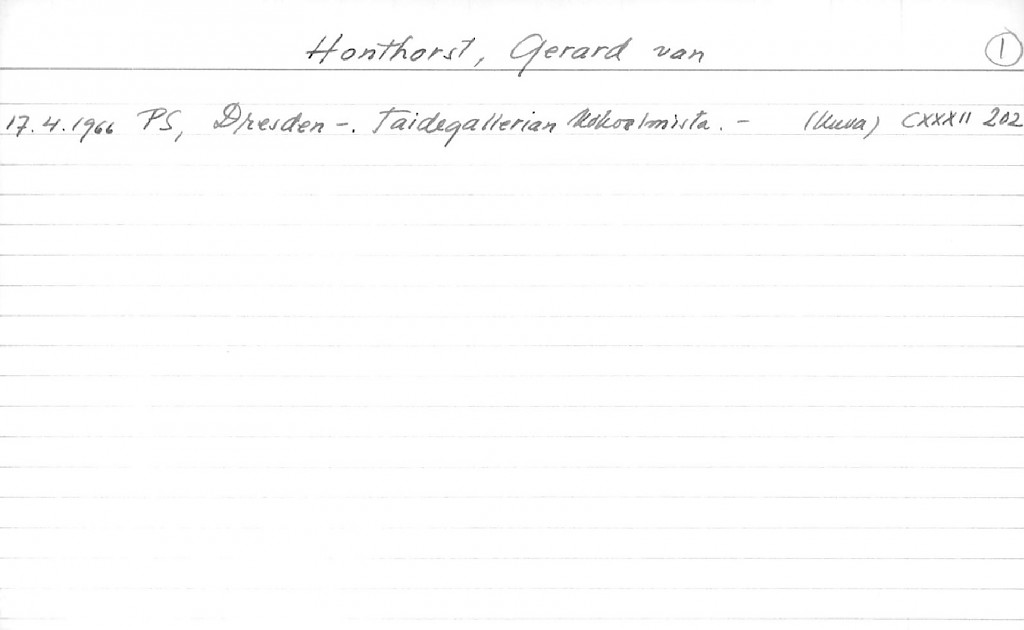 Honthorst, Gerard van 1
17.4.1966 PS, Dresden -. Taidegallerian kokoelmista. - (kuva) CXXXII 202